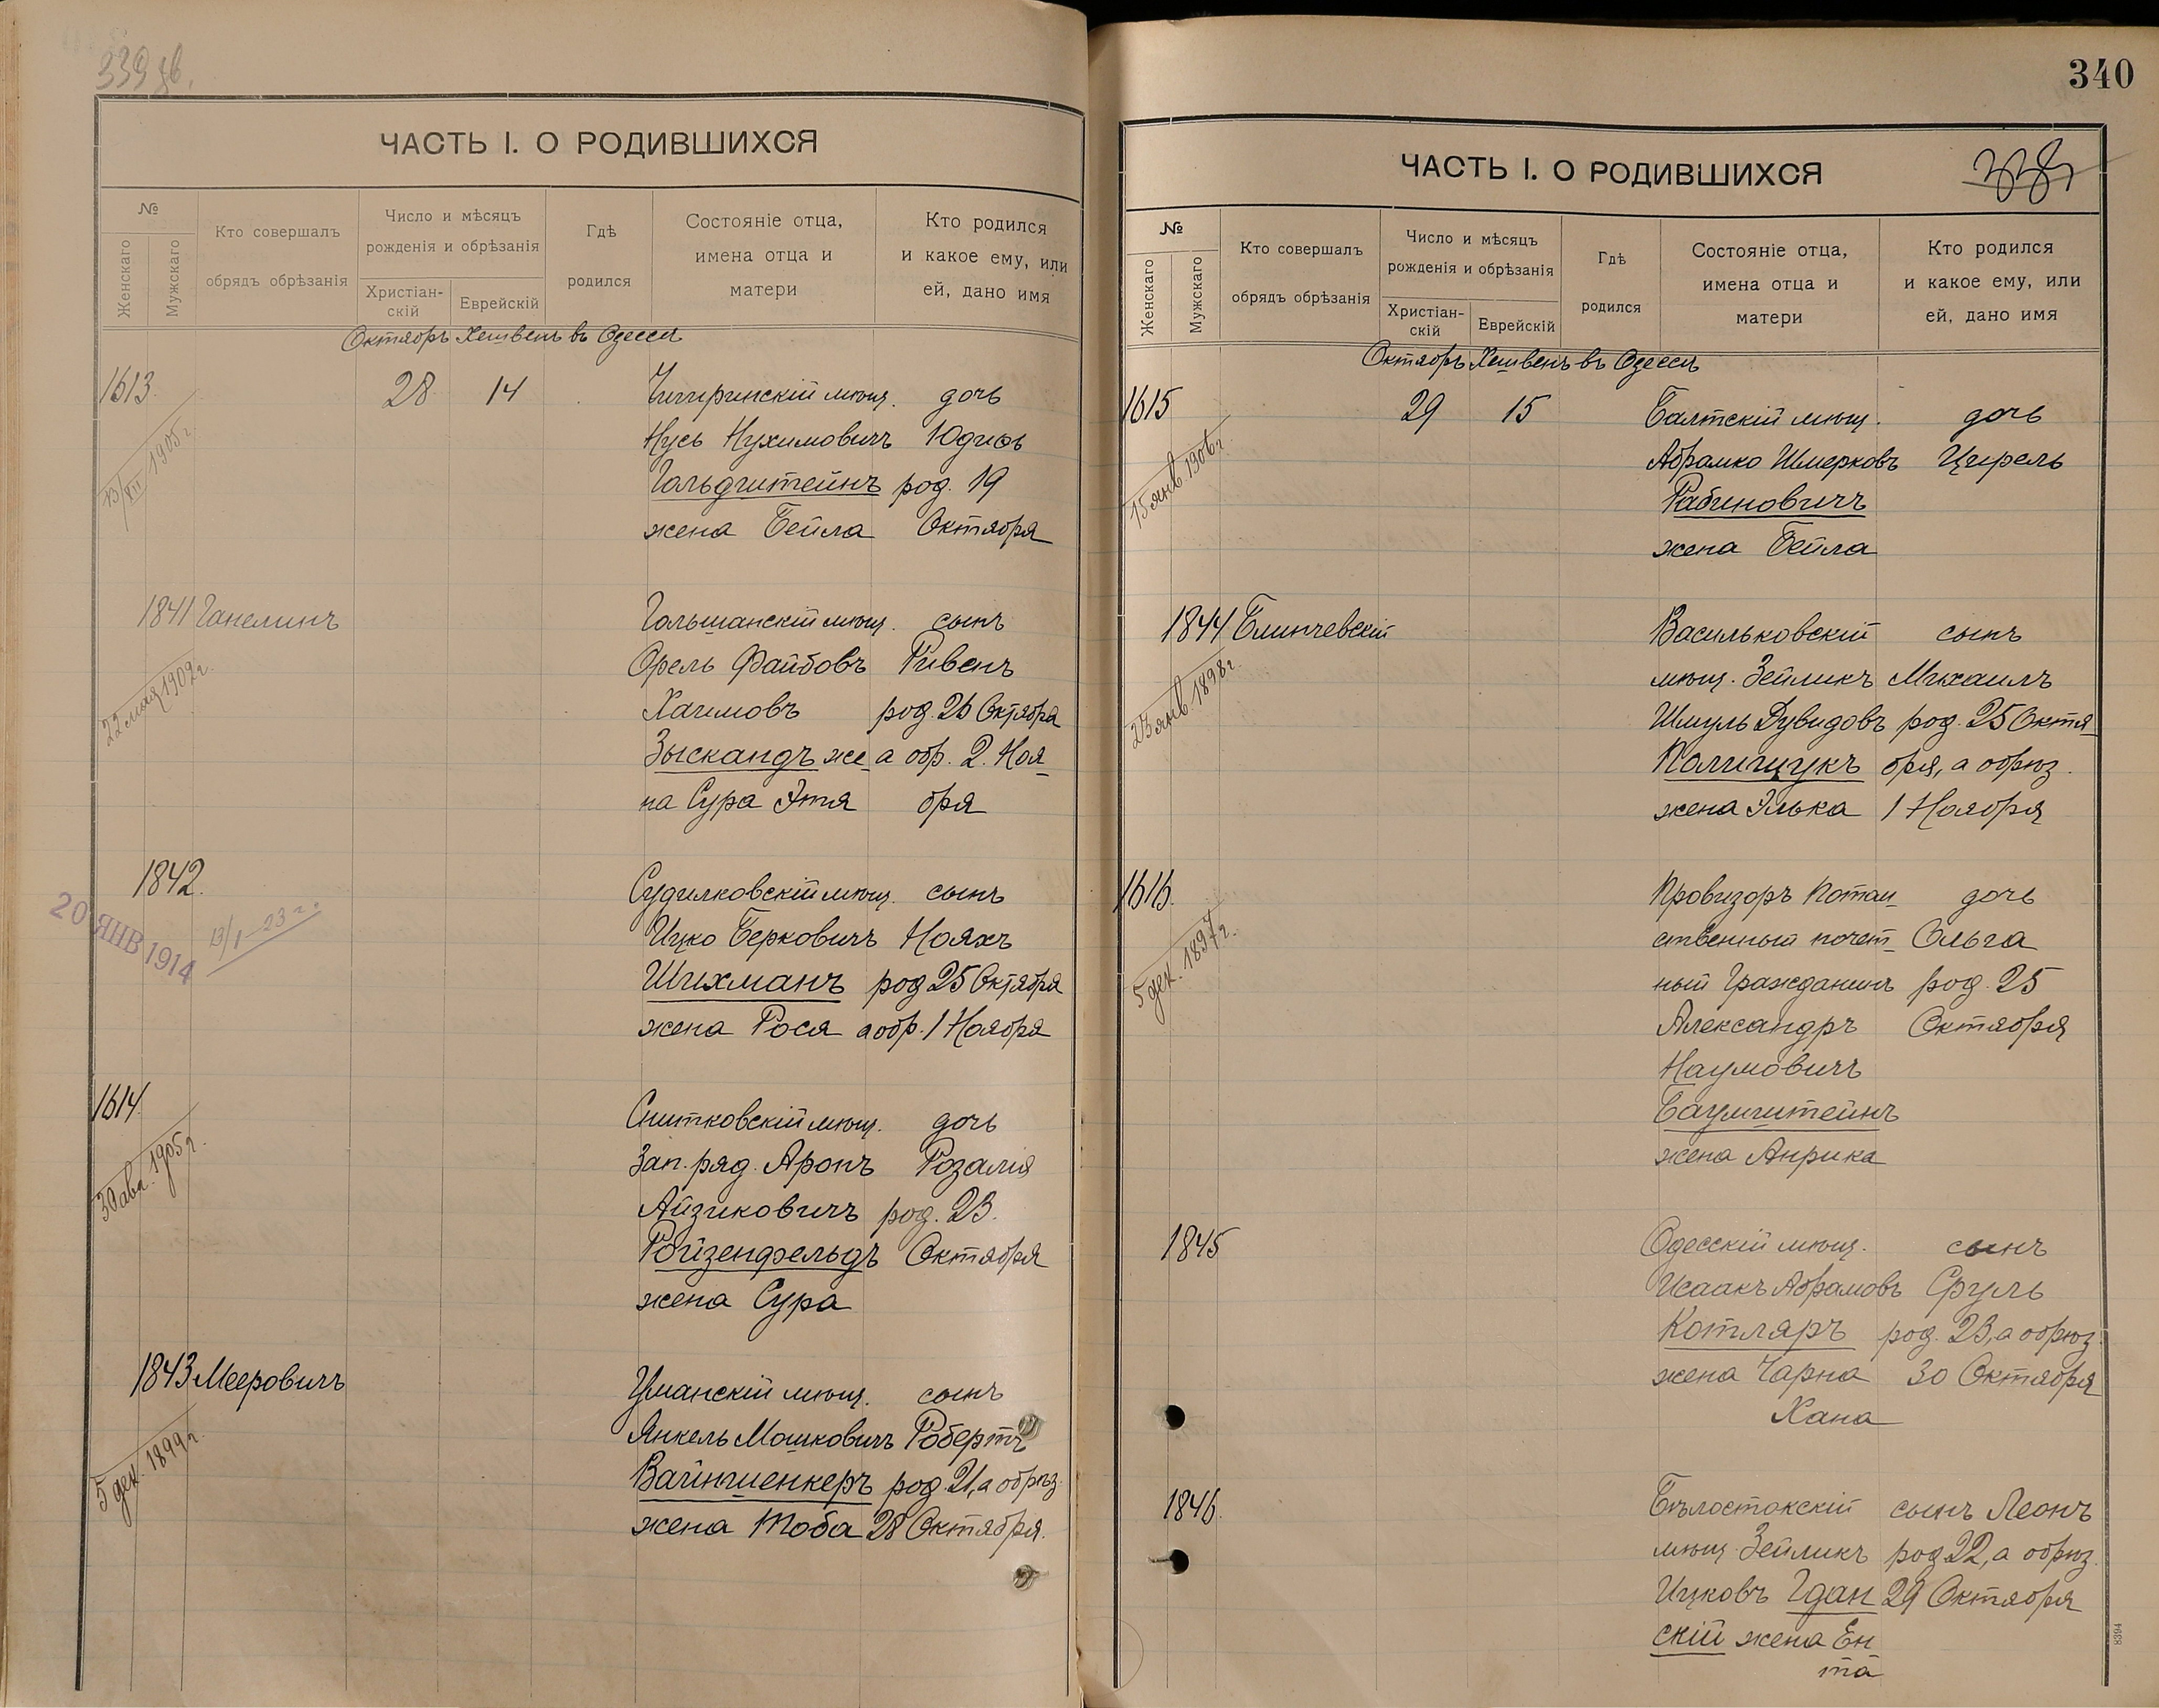 339 об.
ЧАСТЬ I. О РОДИВШИХСЯ
№
Женскаго
Мужскаго
Кто совершалъ
обрядъ обрѣзанія
Число и мѣсяцъ
рожденія и обрѣзанія
Христіан-
скій
Еврейскій
Гдѣ
родился
Состояніе отца,
имена отца и
матери
Кто родился
и какое ему, или
ей, дано имя
Октябрь Хешвенъ въ Одессѣ
1613. 28 14 Чигиринскій мѣщ. дочь
Нусь Нухимовичъ Юдиѳь
Гольдштейнъ род. 19
жена Бейла Октября
13/XII 1905 г.
1841 Ганелинъ Гольшанскій мѣщ. сынъ
Орель Файбовъ Рувенъ
Хаимовъ род. 26 Октября
Зыскандъ же- а обр. 2. Ноя-
на Сура Этя бря
22 мая 1902 г.
1842. Судилковскій мѣщ. сынъ
Ицко Берковичъ Нояхъ
Шихманъ род 25 Октября
жена Рося а обр. 1 Ноября
20 ЯНВ 1914
13/I–23 г.
1614. Снитковскій мѣщ. дочь
Зап. ряд. Аронъ Розалія
Айзиковичъ род. 23.
Ройзенфельдъ Октября
жена Сура
30 авг. 1905 г.
1843 Мееровичъ Уманскій мѣщ. сынъ
Янкель Мошковичъ Робертъ
Вайншенкеръ род. 21, а обрѣз.
жена Тоба 28 Октября.
5 дек. 1899 г.
340
ЧАСТЬ I. О РОДИВШИХСЯ
№
Женскаго
Мужскаго
Кто совершалъ
обрядъ обрѣзанія
Число и мѣсяцъ
рожденія и обрѣзанія
Христіан-
скій
Еврейскій
Гдѣ
родился
Состояніе отца,
имена отца и
матери
Кто родился
и какое ему, или
ей, дано имя
Октябрь Хешвенъ въ Одессѣ
1615 29 15 Балтскій мѣщ. дочь
Абрамко Шмерковъ Цирель
Рабиновичъ
жена Бейла
15 янв. 1906 г.
1844 Блинчевскій Васильковскій сынъ
мѣщ. Зейликъ Михаилъ
Шмуль Дувидовъ род. 25 Октя-
Полищукъ бря, а обрѣз.
жена Элька 1 Ноября
23 янв. 1898 г.
1616. Провизоръ Потом- дочь
ственный почет- Ольга
ный Гражданинъ род. 25
Александръ Октября
Наумовичъ
Баумштейнъ
жена Анрика
5 дек. 1897 г.
1845 Одесскій мѣщ. сынъ
Исаакъ Абрамовъ Сруль
Котляръ род. 23, а обрѣз.
жена Чарна 30 Октября
Хана
1846. Бѣлостокскій сынъ Леонъ
мѣщ. Зейликъ род 22, а обрѣз.
Ицковъ Гдан 29 Октября
скій жена Ен
та
8394